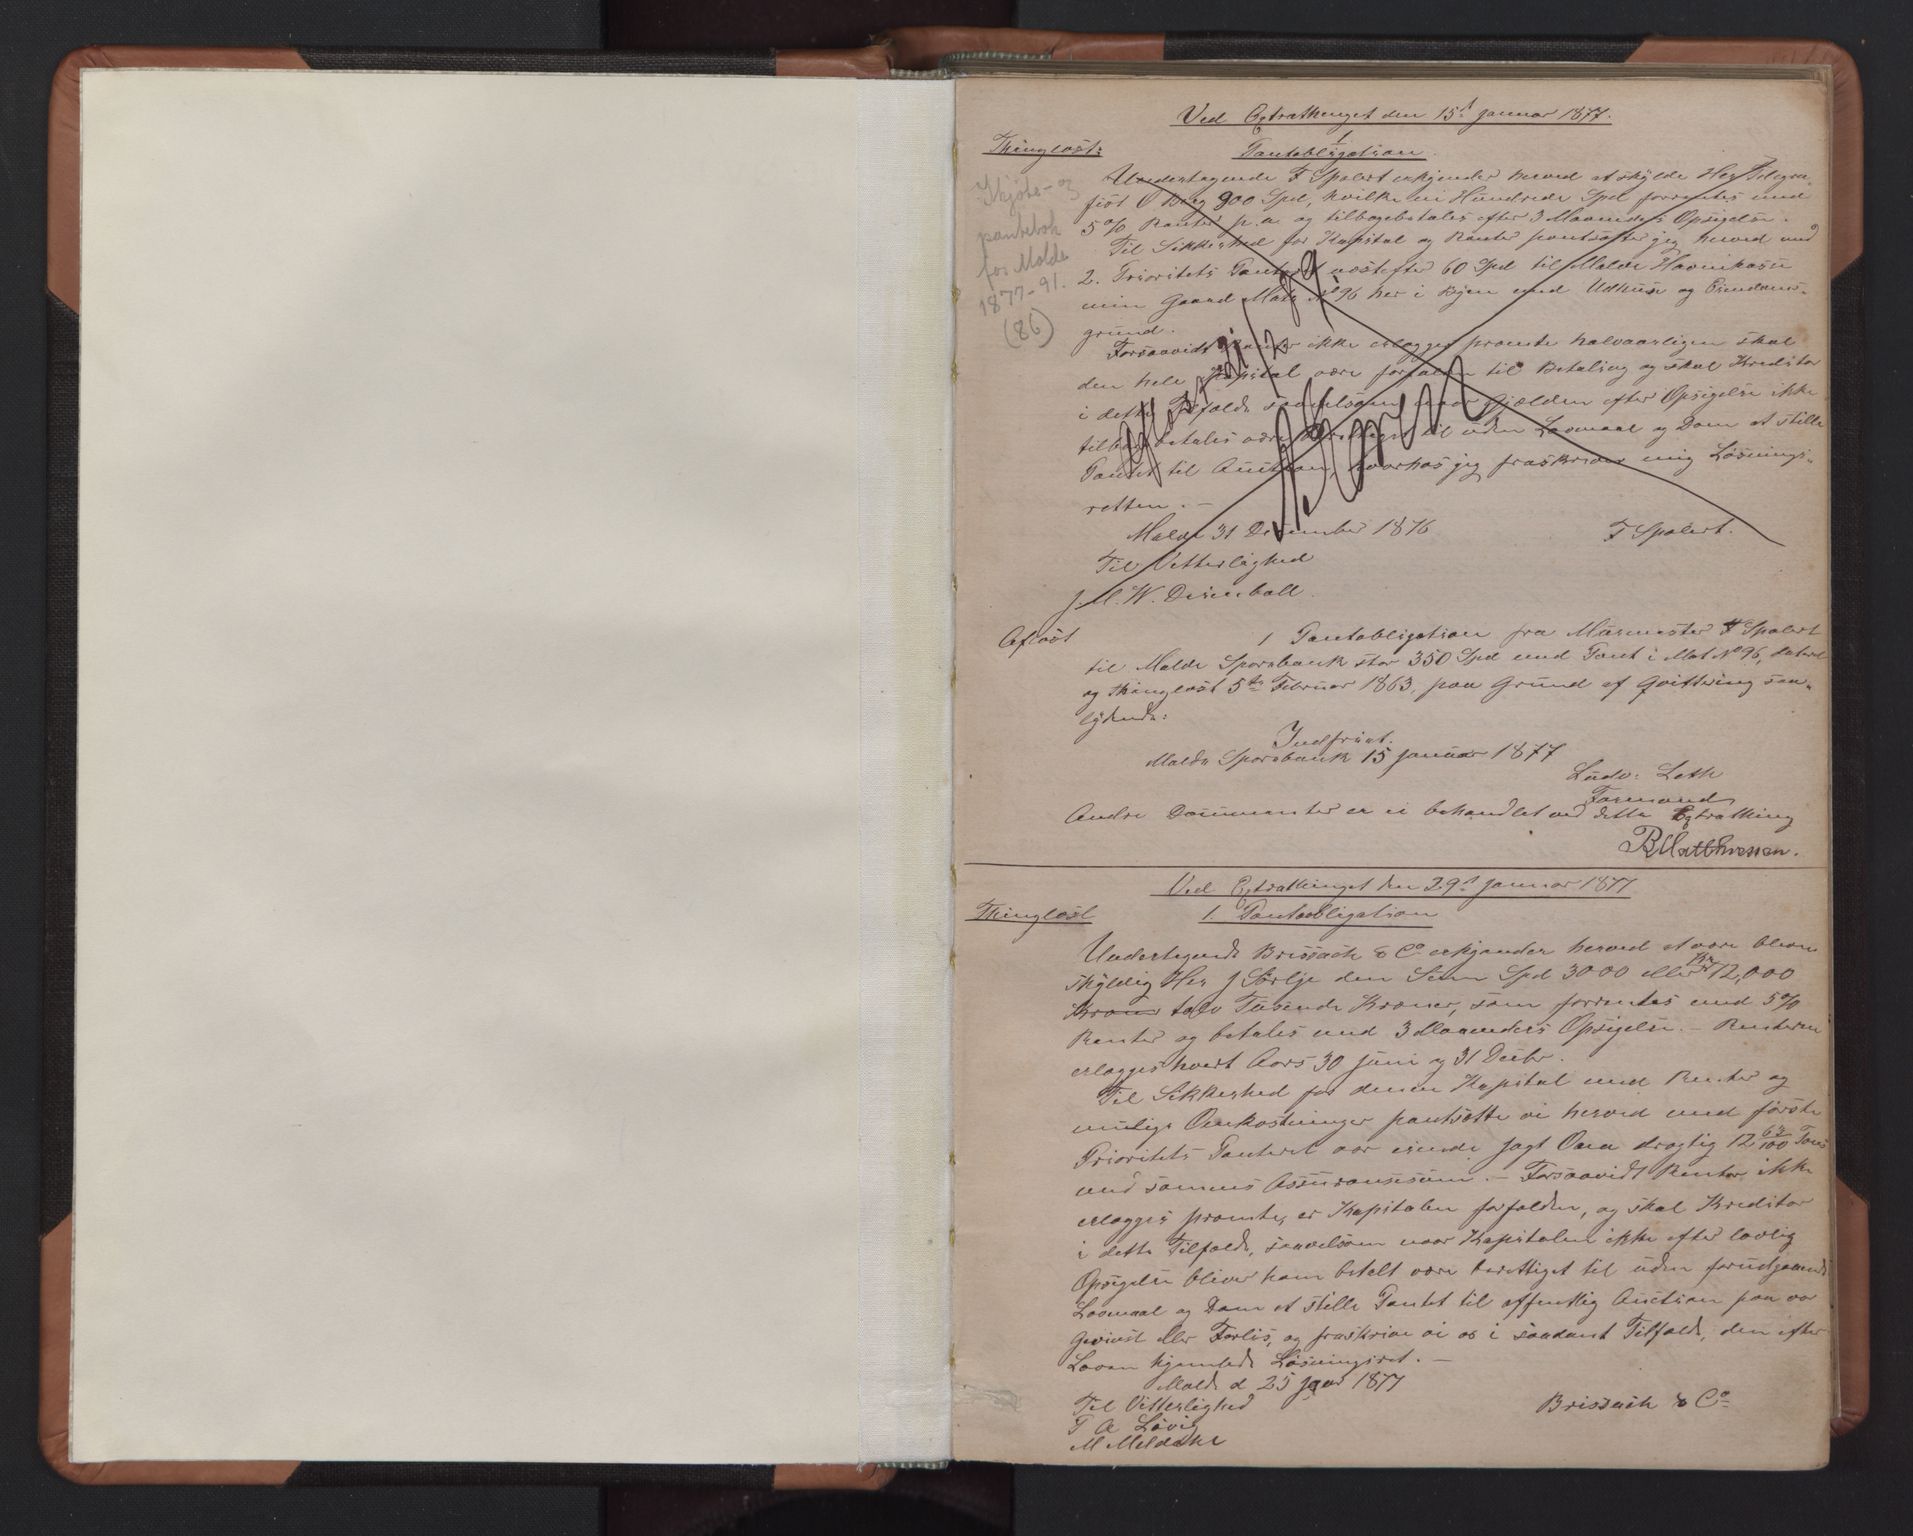 Ved Extrathinget den 15de Januar 1877.
Thinglæst:
1
Pantobligation.
Skjøte- og
pantebok
for Molde
1877-91.
(86)
Undertegnede F Spolert erkjender herved at skylde Her Telegra-
fist O Berg 900 Spd, hvilke ni Hundrede Spd forrentes med
5 % Renter p. a. og tilbagebetales efter 3 Maaneders Opsigelse.
Til Sikkerhed for Kapital og Renter pantsætter jeg herved med
2. Prioritets Panteret næstefter 60 Spd til Molde Havnekasse
min Gaard Matr No 96 her i Byen med Udhuse og Eiendoms-
grund.
Forsaavidt Renter ikke erlægges promte halvaarligen skal
den hele Kapital være forfalden til Betaling og skal Kreditor
i dette Tilfælde saavelsom naar Gjælden efter Opsigelse ikke
tilbagebetales være berettiget til uden Lovmaal og Dom at stille
Pantet til Auction, hvorhos jeg fraskriver mig Løsnings-
retten. —
Molde 31 December 1876
F Spolert.
Til Vitterlighed
J. M. W. Disenball.
Aflæst
1 Pantobligation fra Murmester F Spolert
til Molde Sparebank stor 350 Spd med Pant i Mat No 96, dateret
og thinglæst 5te Februar 1863, paa Grund af Qvittering saa-
lydende:
Indfriet.
Molde Sparebank 15 Januar 1877
Ludv: Leth
Formand
Andre Documenter er ei behandlet ved dette Extrathing
B Matthiessen.
Ved Extrathinget den 29de Januar 1877
Thinglæst
1. Pantobligation
Undertegnede Brissach & Co erkjender herved at være bleven
skyldig Her J Sørlje den Sum Spd 3000 eller Kr 12,000
Kroner tolv Tusende Kroner, som forrentes med 5 %
Renter og betales med 3 Maaneders Opsigelse. — Renterne
erlægges hvert Aars 30 Juni og 31 Decbr.
Til Sikkerhed for denne Kapital med Renter og
mulige Omkostninger pantsætte vi herved med første
Prioritets Panteret vor eiende Jagt Ona drægtig 12 67/100 Tons
med sammes Assuransesum. — Forsaavidt Renter ikke
erlægges promte, er Kapitalen forfalden, og skal Kreditor
i dette Tilfælde, saavelsom naar Kapitalen ikke efter lovlig
Opsigelse bliver ham betalt være berettiget til uden forudgaaende
Lovmaal og Dom at stille Pantet til offentlig Auction paa vor
Gevinst eller Forlis, og fraskrive vi os i saadant Tilfælde, den efter
Loven hjemlede Løsningsret. —
Molde d 25 Janr 1877
Til Vitterlighed
Brissach & Co
T A Løvig
M Meldahl